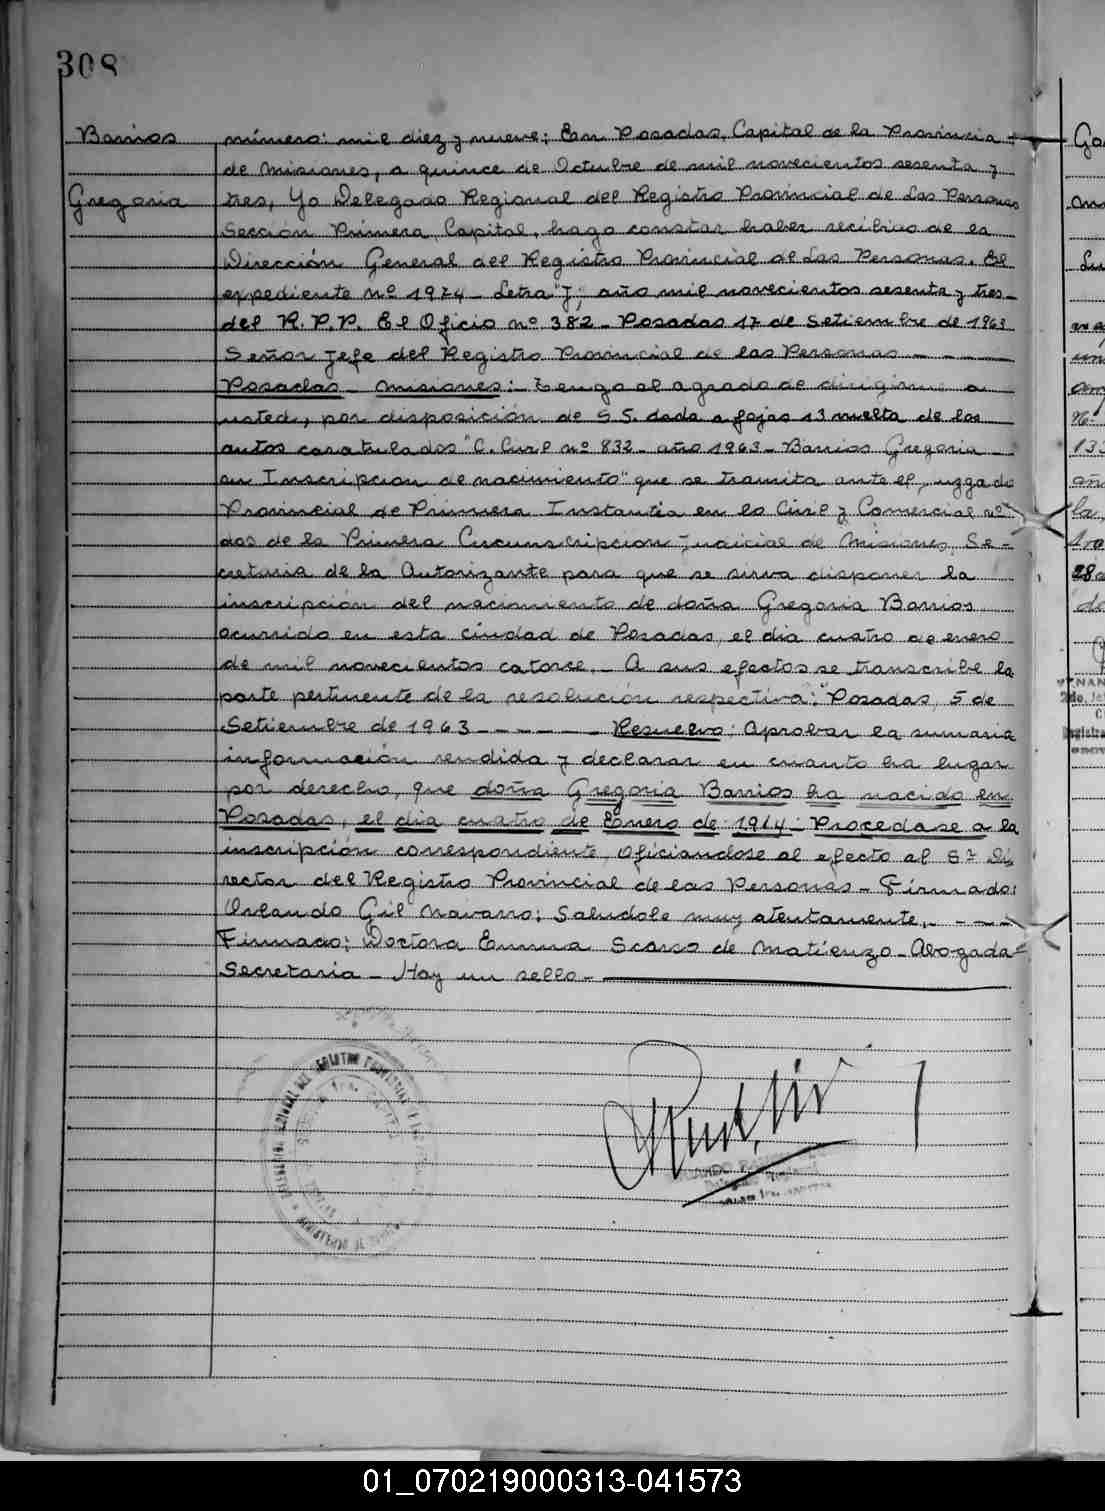 308
Barrios
Gregoria
número: mil diez y nueve; En Posadas, Capital de la Provincia
de Misiones, a quince de Octubre de mil novecientos sesenta y
tres, Yo Delegado Regional del Registro Provincial de Las Personas
Sección Primera, Capital, hago constar haber recibido de la
Dirección General del Registro Provincial de Las Personas. El
expediente nº 1974 - Letra "J", año mil novecientos sesenta y tres -
del R.P.P. El Oficio nº 382 - Posadas 17 de Setiembre de 1963
Señor Jefe del Registro Provincial de las Personas - - - -
Posadas - Misiones: Tengo el agrado de dirigirme a
usted, por disposición de S.S. dada a fojas 13 vuelta de los
autos caratulados "C. Civil nº 832 - año 1963 - Barrios Gregoria -
en Inscripcion de nacimiento" que se tramita ante el Juzgado
Provincial de Primera Instantia en lo Civil y Comercial nº
dos de la Primera Circunscripcion Judicial de Misiones, Se-
cretaria de la Autorizante para que se sirva disponer la
inscripción del nacimiento de doña Gregoria Barrios
ocurrido en esta ciudad de Posadas, el día cuatro de enero
de mil novecientos catorce. - A sus efectos se transcribe la
parte pertinente de la resolución respectiva: "Posadas, 5 de
Setiembre de 1963 - - - - - - Resuelvo: Aprobar la sumaria
información rendida y declarar en cuanto ha lugar
por derecho, que doña Gregoria Barrios ha nacido en
Posadas, el día cuatro de Enero de 1914 - Procedase a la
inscripción correspondiente, oficiandose al efecto al Sr. Di-
rector del Registro Provincial de las Personas - Firmado:
Orlando Gil Navarro; Saludole muy atentamente. - - - -
Firmado: Doctora Emma Scarso de Matienzo - Abogada -
Secretaria - Hay un sello -
Delegado Regional
Go
Lu
133
28
01_070219000313-041573